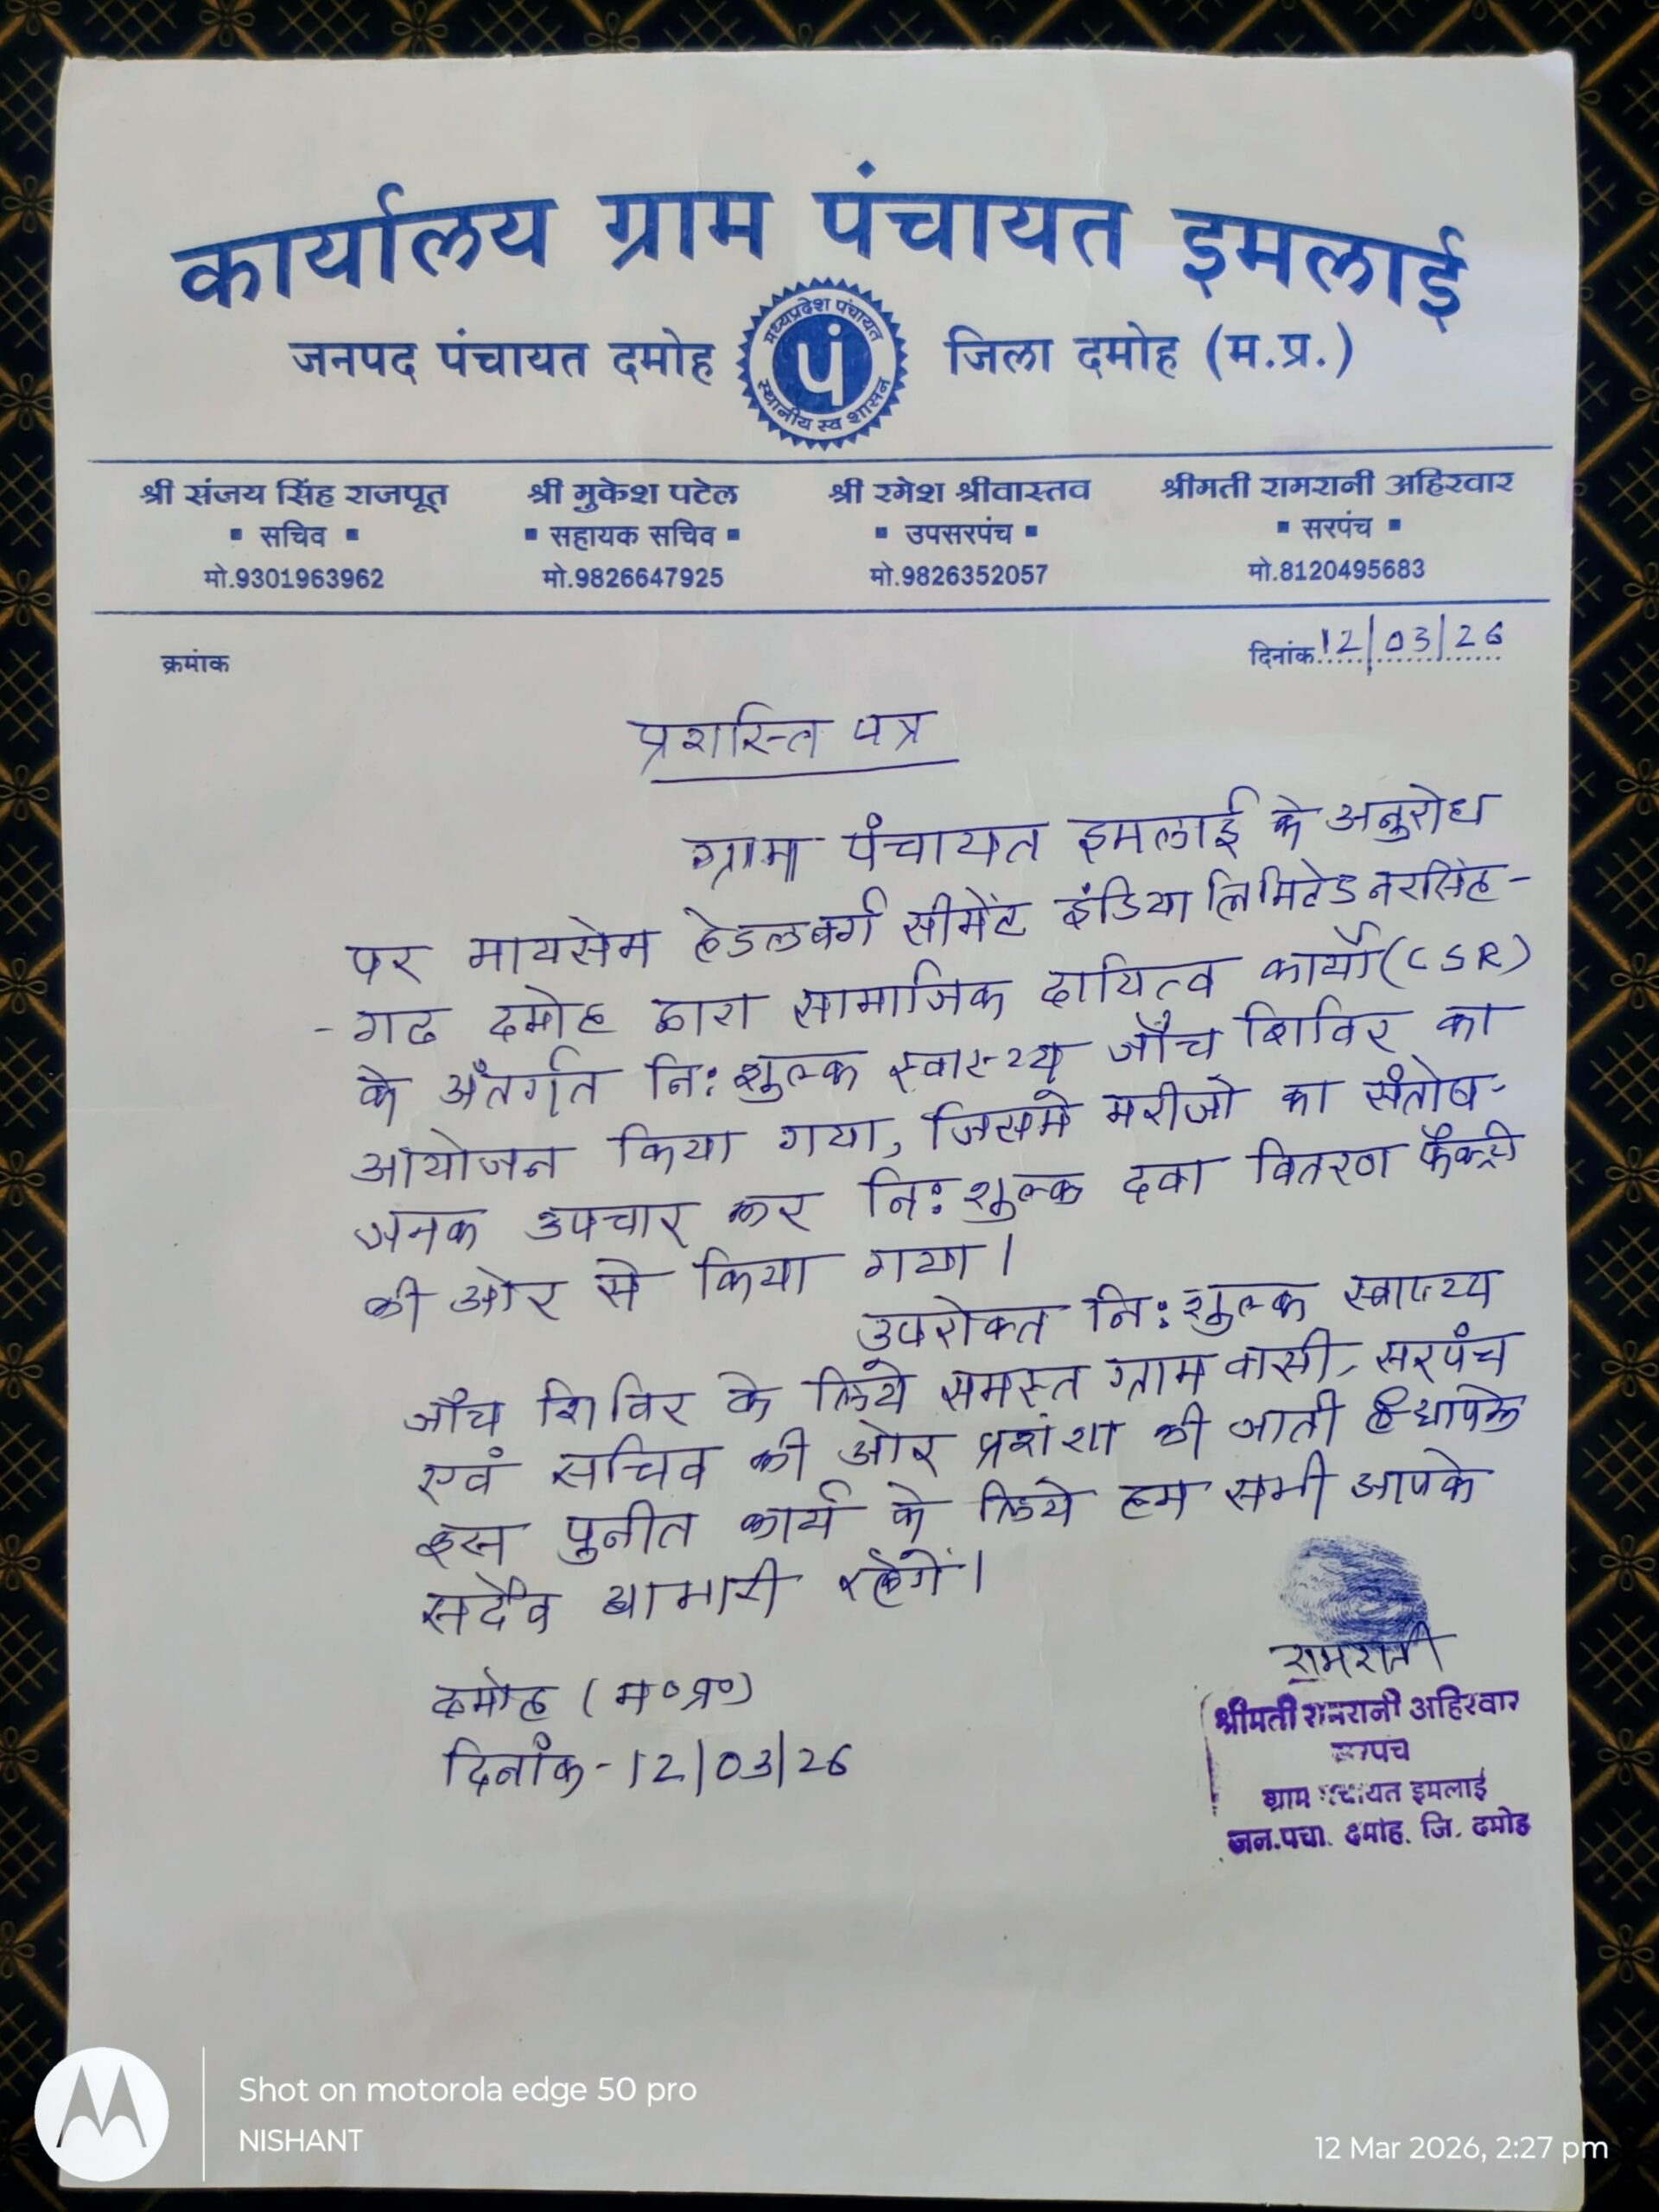 कार्यालय ग्राम पंचायत इमलाई
जनपद पंचायत दमोह
मध्यप्रदेश पंचायत
पं
स्थानीय स्व शासन
जिला दमोह (म.प्र.)
श्री संजय सिंह राजपूत श्री मुकेश पटेल श्री रमेश श्रीवास्तव श्रीमती रामरानी अहिरवार
▪ सचिव ▪ ▪ सहायक सचिव ▪ ▪ उपसरपंच ▪ ▪ सरपंच ▪
मो.9301963962 मो.9826647925 मो.9826352057 मो.8120495683
क्रमांक दिनांक 12/03/26
प्रशस्ति पत्र
ग्राम पंचायत इमलाई के अनुरोध
पर मायसेम हेडलबर्ग सीमेंट इंडिया लिमिटेड नरसिंह-
-गढ दमोह द्वारा सामाजिक दायित्व कार्यो (CSR)
के अंतर्गत नि:शुल्क स्वास्थ्य जाँच शिविर का
आयोजन किया गया, जिसमे मरीजो का संतोष-
जनक उपचार कर नि:शुल्क दवा वितरण फैक्ट्री
की ओर से किया गया।
उपरोक्त नि:शुल्क स्वास्थ्य
जाँच शिविर के लिये समस्त ग्राम वासी, सरपंच
एवं सचिव की ओर प्रशंशा की जाती है आपके
इस पुनीत कार्य के लिये हम सभी आपके
सदैव आभारी रहेगें।
दमोह (म०प्र०)
दिनांक-12/03/26
रामरानी
श्रीमती रामरानी अहिरवार
सरपंच
ग्राम पंचायत इमलाई
जन.पचा. दमोह. जि. दमोह
Shot on motorola edge 50 pro
NISHANT
12 Mar 2026, 2:27 pm